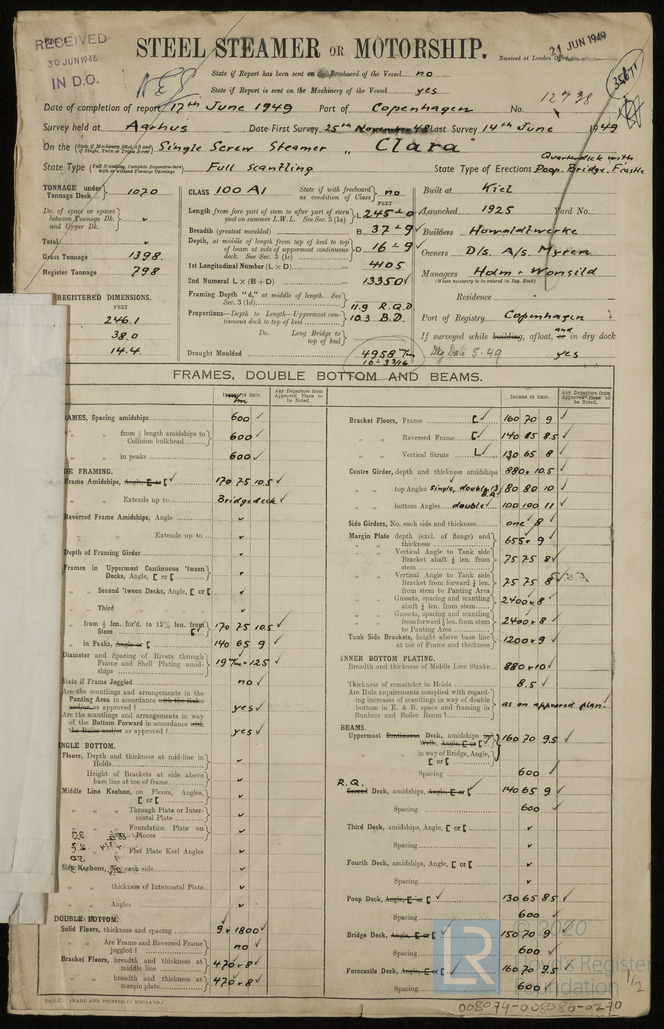 RECEIVED
30 JUN 1946
IN D.O.
STEEL STEAMER OR MOTORSHIP.
Received at London Office 21 JUN 1949
State if Report has been sent on the Freeboard of the Vessel no
State if Report is sent on the Machinery of the Vessel yes
Date of completion of report 17th June 1949 Port of Copenhagen No. 12738
Survey held at Aarhus Date First Survey 25th November 48 Last Survey 14th June 1949
On the (State if Machinery fitted Aft and if Single, Twin or Triple Screw) Single Screw Steamer "Clara"
State Type (Full Scantling, Complete Superstructure with or without Tonnage Openings) Full Scantling State Type of Erections Quarterdeck with Poop, Bridge, F'castle
TONNAGE under Tonnage Deck 1070
Do. of space or spaces between Tonnage Dk. and Upper Dk. "
Total "
Gross Tonnage 1398
Register Tonnage 798
REGISTERED DIMENSIONS.
FEET
246.1
38.0
14.4
CLASS 100 A1 State if with freeboard as condition of Class no
FEET
Length from fore part of stem to after part of stern post on summer L.W.L. See Sec. 3 (1a) L 245-0
Breadth (greatest moulded) B 37-9
Depth, at middle of length from top of keel to top of beam at side of uppermost continuous deck. See Sec. 3 (1c) D 16-9
1st Longitudinal Number (L × D) = 4105
2nd Numeral L × (B + D) = 13350
Framing Depth "d," at middle of length. See Sec. 3 (1d)
Proportions—Depth to Length—Uppermost continuous deck to top of keel 11.9 R.Q.D. 10.3 B.D.
Do. Long Bridge to top of keel
Draught Moulded 4958 m/m 16-3 3/16
Built at Kiel
Launched 1925 Yard No.
Builders Howaldtwerke
Owners D/s. A/s Myren
Managers Holm & Wonsild
(Where necessary to be entered in Reg. Book)
Residence
Port of Registry Copenhagen
If surveyed while building, afloat, or and in dry dock yes
Dkg Date 5.49
FRAMES, DOUBLE BOTTOM AND BEAMS.
INCHES IN SHIP. m/m
Any Departure from Approved Plans to be Noted.
FRAMES, Spacing amidships 600
" " from 1/5 length amidships to Collision bulkhead 600
" " in peaks 600
SIDE FRAMING.
Frame Amidships, Angle, [ or [ 170 75 10.5
" " Extends up to Bridgedeck
Reversed Frame Amidships, Angle "
" " Extends up to "
Depth of Framing Girder "
Frames in Uppermost Continuous 'tween Decks, Angle, [ or [ "
" Second 'tween Decks, Angle, [ or [ "
" Third "
" from 1/5 len. for'd. to 15% len. from Stem 170 75 10.5
" in Peaks, Angle or [ 140 65 9
Diameter and Spacing of Rivets through Frame and Shell Plating amidships 19 m/m × 125
State if Frame Joggled no
Are the scantlings and arrangements in the Panting Area in accordance with the Rules and/or as approved? yes
Are the scantlings and arrangements in way of the Bottom Forward in accordance with the Rules and/or as approved? yes
SINGLE BOTTOM.
Floors, Depth and thickness at mid-line in Holds "
Height of Brackets at side above base line at toe of frame "
Middle Line Keelson, on Floors, Angles, [ or [ "
" " Through Plate or Intercostal Plate "
" " Foundation Plate on Floors "
" " Flat Plate Keel Angles "
Side Keelsons, No. each side "
" " thickness of Intercostal Plate "
" " Angles "
DOUBLE BOTTOM.
Solid Floors, thickness and spacing 9 × 1800
" " Are Frame and Reversed Frame joggled? no
Bracket Floors, breadth and thickness at middle line 470 × 8
" " breadth and thickness at margin plate 470 × 8
INCHES IN SHIP.
Any Departure from Approved Plans to be Noted.
Bracket Floors, Frame [ 160 70 9
" " Reversed Frame [ 140 65 8.5
" " Vertical Struts L 130 65 8
Centre Girder, depth and thickness amidships 880 × 10.5
" " top Angles single, double 80 80 10
" " bottom Angles double 100 100 11
Side Girders, No. each side and thickness one 8
Margin Plate depth (excl. of flange) and thickness 655 × 9
" " Vertical Angle to Tank side Bracket abaft 1/4 len. from stem 75 75 8
" " Vertical Angle to Tank side Bracket from forward 1/4 len. from stem to Panting Area 75 75 8
" " Gussets, spacing and scantling abaft 1/4 len. from stem 2400 × 8
" " Gussets, spacing and scantling from forward 1/4 len. from stem to Panting Area 2400 × 8
Tank Side Brackets, height above base line at toe of Frame and thickness 1200 × 9
INNER BOTTOM PLATING.
Breadth and thickness of Middle Line Strake 880 × 10
Thickness of remainder in Holds 8.5
Are Rule requirements complied with regarding increases of scantlings in way of double bottom in E. & B. space and framing in Bunkers and Boiler Room? as on approved plan
BEAMS.
Uppermost Continuous Deck, amidships in Wells, Angle, [ or [ 160 70 9.5
" " in way of Bridge, Angle, [ or [
Spacing 600
R.Q.
Second Deck, amidships, Angle, [ or [ 140 65 9
Spacing 600
Third Deck, amidships, Angle, [ or [ "
Spacing "
Fourth Deck, amidships, Angle, [ or [ "
Spacing "
Poop Deck, Angle, [ or [ 130 65 8.5
Spacing 600
Bridge Deck, Angle, [ or [ 150 70 9
Spacing 600
Forecastle Deck, Angle, [ or [ 160 70 9.5
Spacing 600
(MADE AND PRINTED IN ENGLAND.)
LR
© 2020
Lloyd's Register
Foundation
1/2
008079-008080-0270